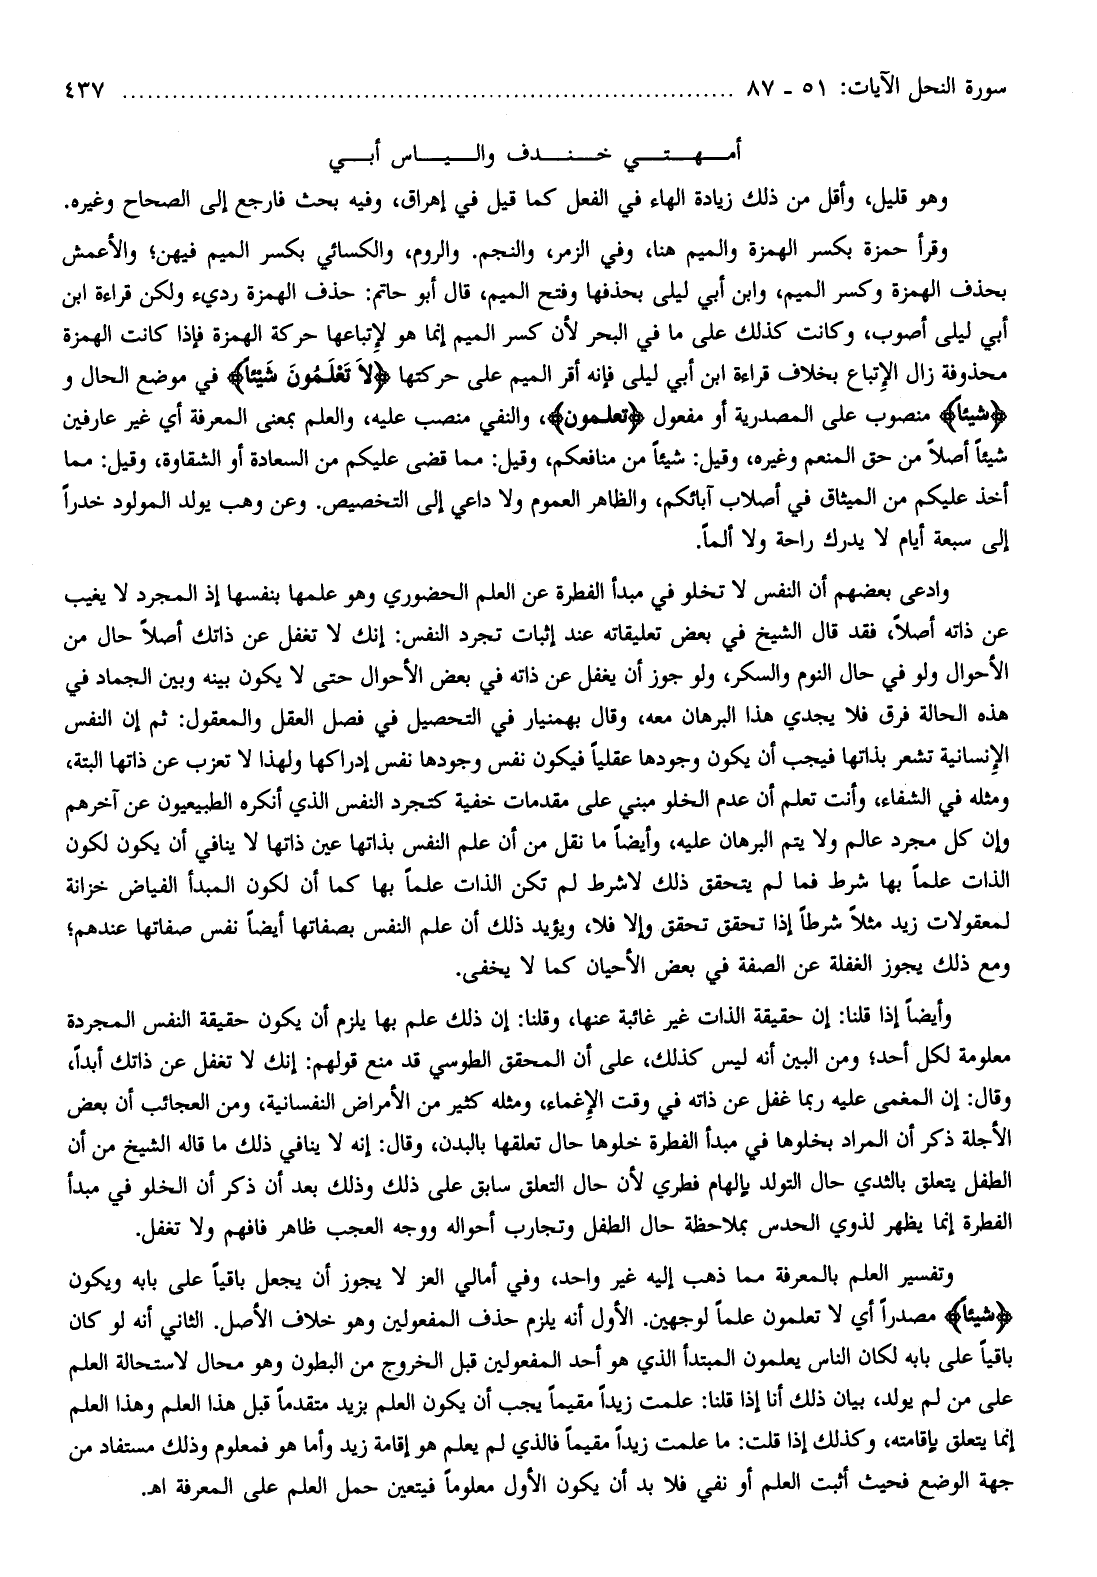 سورة النحل الآيات: ٥١ ـ ٨٧ ........................................................................ ٤٣٧
أمـــهـــتـــي خـــنـــدف والـــيـــاس أبـــي
وهو قليل، وأقل من ذلك زيادة الهاء في الفعل كما قيل في إهراق، وفيه بحث فارجع إلى الصحاح وغيره.
وقرأ حمزة بكسر الهمزة والميم هنا، وفي الزمر، والنجم. والروم، والكسائي بكسر الميم فيهن؛ والأعمش
بحذف الهمزة وكسر الميم، وابن أبي ليلى بحذفها وفتح الميم، قال أبو حاتم: حذف الهمزة رديء ولكن قراءة ابن
أبي ليلى أصوب، وكانت كذلك على ما في البحر لأن كسر الميم إنما هو لإتباعها حركة الهمزة فإذا كانت الهمزة
محذوفة زال الإتباع بخلاف قراءة ابن أبي ليلى فإنه أقر الميم على حركتها ﴿لاَ تَعْلَمُونَ شَيْئاً﴾ في موضع الحال و
﴿شيئاً﴾ منصوب على المصدرية أو مفعول ﴿تعلمون﴾، والنفي منصب عليه، والعلم بمعنى المعرفة أي غير عارفين
شيئاً أصلاً من حق المنعم وغيره، وقيل: شيئاً من منافعكم، وقيل: مما قضى عليكم من السعادة أو الشقاوة، وقيل: مما
أخذ عليكم من الميثاق في أصلاب آبائكم، والظاهر العموم ولا داعي إلى التخصيص. وعن وهب يولد المولود خدراً
إلى سبعة أيام لا يدرك راحة ولا ألماً.
وادعى بعضهم أن النفس لا تخلو في مبدأ الفطرة عن العلم الحضوري وهو علمها بنفسها إذ المجرد لا يغيب
عن ذاته أصلاً، فقد قال الشيخ في بعض تعليقاته عند إثبات تجرد النفس: إنك لا تغفل عن ذاتك أصلاً حال من
الأحوال ولو في حال النوم والسكر، ولو جوز أن يغفل عن ذاته في بعض الأحوال حتى لا يكون بينه وبين الجماد في
هذه الحالة فرق فلا يجدي هذا البرهان معه، وقال بهمنيار في التحصيل في فصل العقل والمعقول: ثم إن النفس
الإنسانية تشعر بذاتها فيجب أن يكون وجودها عقلياً فيكون نفس وجودها نفس إدراكها ولهذا لا تعزب عن ذاتها البتة،
ومثله في الشفاء، وأنت تعلم أن عدم الخلو مبني على مقدمات خفية كتجرد النفس الذي أنكره الطبيعيون عن آخرهم
وإن كل مجرد عالم ولا يتم البرهان عليه، وأيضاً ما نقل من أن علم النفس بذاتها عين ذاتها لا ينافي أن يكون لكون
الذات علماً بها شرط فما لم يتحقق ذلك لاشرط لم تكن الذات علماً بها كما أن لكون المبدأ الفياض خزانة
لمعقولات زيد مثلاً شرطاً إذا تحقق تحقق وإلا فلا، ويؤيد ذلك أن علم النفس بصفاتها أيضاً نفس صفاتها عندهم؛
ومع ذلك يجوز الغفلة عن الصفة في بعض الأحيان كما لا يخفى.
وأيضاً إذا قلنا: إن حقيقة الذات غير غائبة عنها، وقلنا: إن ذلك علم بها يلزم أن يكون حقيقة النفس المجردة
معلومة لكل أحد؛ ومن البين أنه ليس كذلك، على أن المحقق الطوسي قد منع قولهم: إنك لا تغفل عن ذاتك أبداً،
وقال: إن المغمى عليه ربما غفل عن ذاته في وقت الإغماء، ومثله كثير من الأمراض النفسانية، ومن العجائب أن بعض
الأجلة ذكر أن المراد بخلوها في مبدأ الفطرة خلوها حال تعلقها بالبدن، وقال: إنه لا ينافي ذلك ما قاله الشيخ من أن
الطفل يتعلق بالثدي حال التولد بإلهام فطري لأن حال التعلق سابق على ذلك وذلك بعد أن ذكر أن الخلو في مبدأ
الفطرة إنما يظهر لذوي الحدس بملاحظة حال الطفل وتجارب أحواله ووجه العجب ظاهر فافهم ولا تغفل.
وتفسير العلم بالمعرفة مما ذهب إليه غير واحد، وفي أمالي العز لا يجوز أن يجعل باقياً على بابه ويكون
﴿شيئاً﴾ مصدراً أي لا تعلمون علماً لوجهين. الأول أنه يلزم حذف المفعولين وهو خلاف الأصل. الثاني أنه لو كان
باقياً على بابه لكان الناس يعلمون المبتدأ الذي هو أحد المفعولين قبل الخروج من البطون وهو محال لاستحالة العلم
على من لم يولد، بيان ذلك أنا إذا قلنا: علمت زيداً مقيماً يجب أن يكون العلم بزيد متقدماً قبل هذا العلم وهذا العلم
إنما يتعلق بإقامته، وكذلك إذا قلت: ما علمت زيداً مقيماً فالذي لم يعلم هو إقامة زيد وأما هو فمعلوم وذلك مستفاد من
جهة الوضع فحيث أثبت العلم أو نفي فلا بد أن يكون الأول معلوماً فيتعين حمل العلم على المعرفة اهـ.